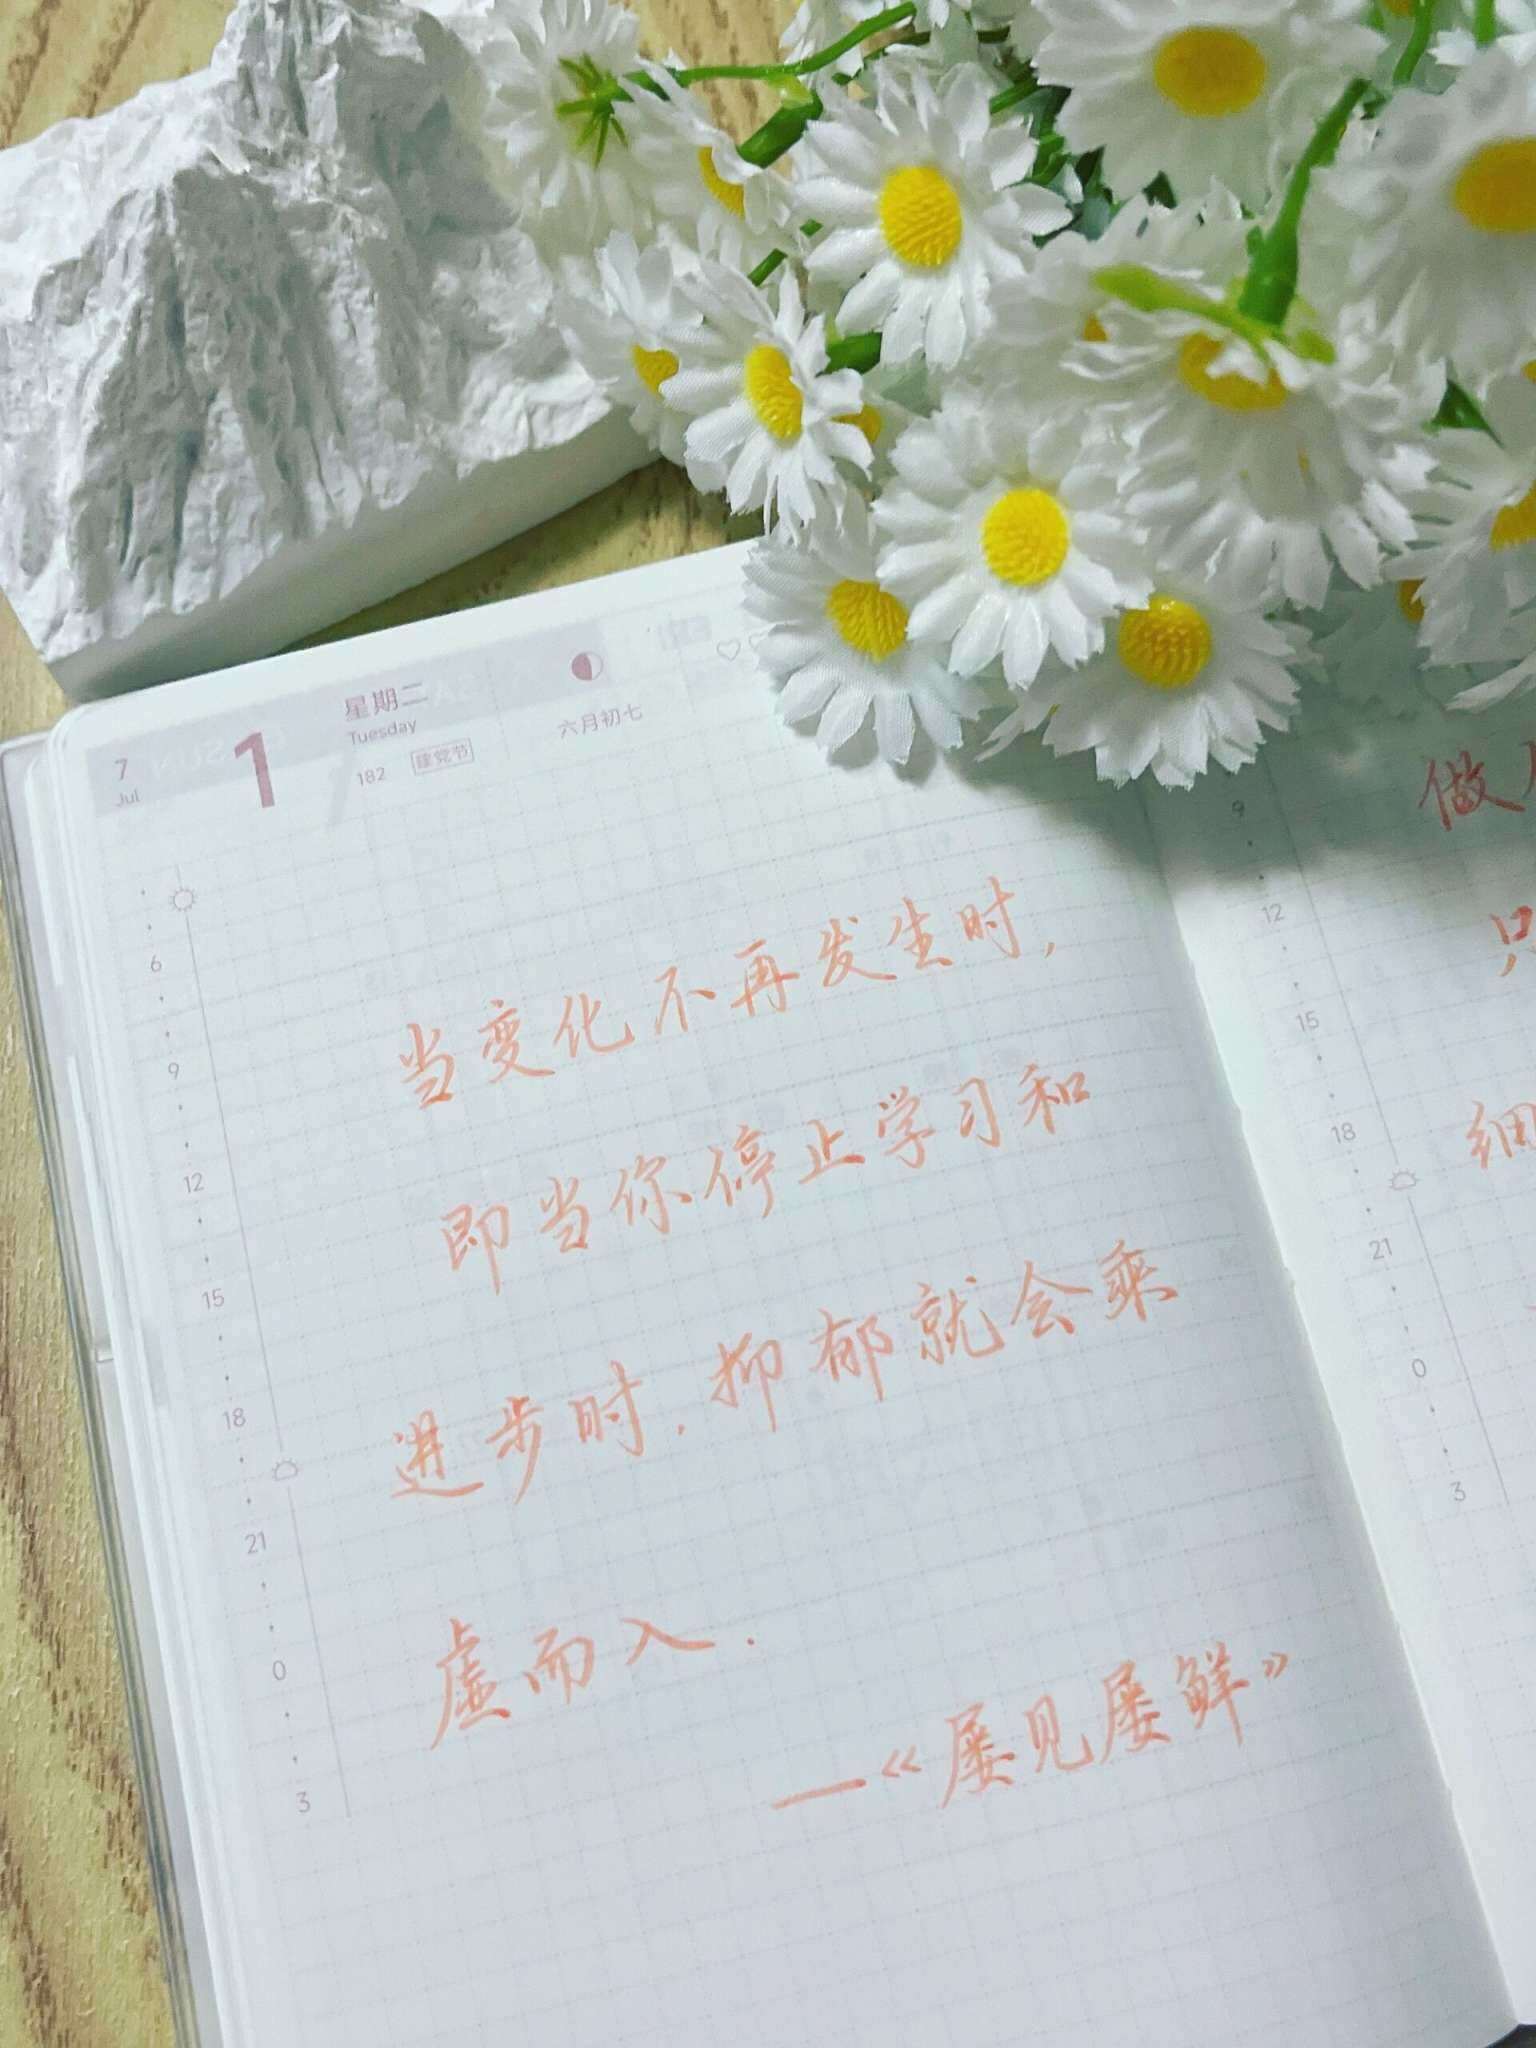 7
Jul
1
星期二
Tuesday
182
建党节
六月初七
6
9
12
15
18
21
0
3
当变化不再发生时，
即当你停止学习和
进步时，抑郁就会乘
虚而入.
—《屡见屡鲜》
做
9
12
只
15
18
细
21
0
3